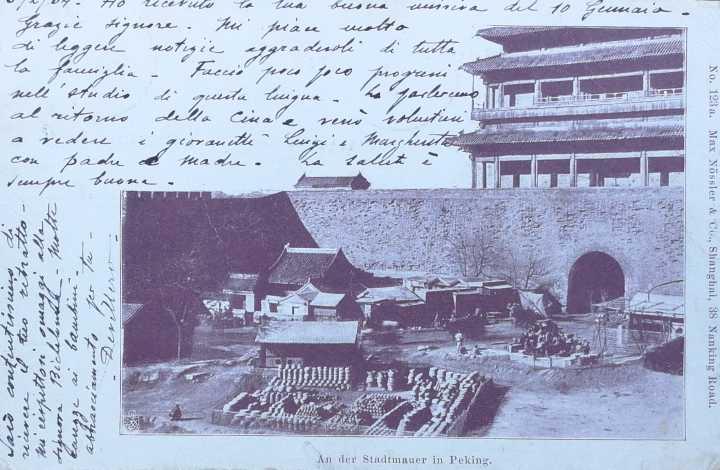 Ho ricevuto la tua buona missiva del 10 Gennaio.
Grazie signore. Mi pian molto
di leggere notizie aggradevoli di tutta
la famiglia. Faccio poco poco progressi
nell'studio di questa lingua. La parleremo
al ritorno della Cina e verrò volontieri
a vedere i giovanitti Luigi e Margherita
con padre e madre. La salute è
sempre buona.
Sarò contentissimo di
ricevere il tuo ritratto.
mi rispettosi omaggi alla
signora Molte
ai bambini.
abbracciamento per te
No. 123a. Max Nössler & Co., Shanghai, 38 Nanking Road.
An der Stadtmauer in Peking.